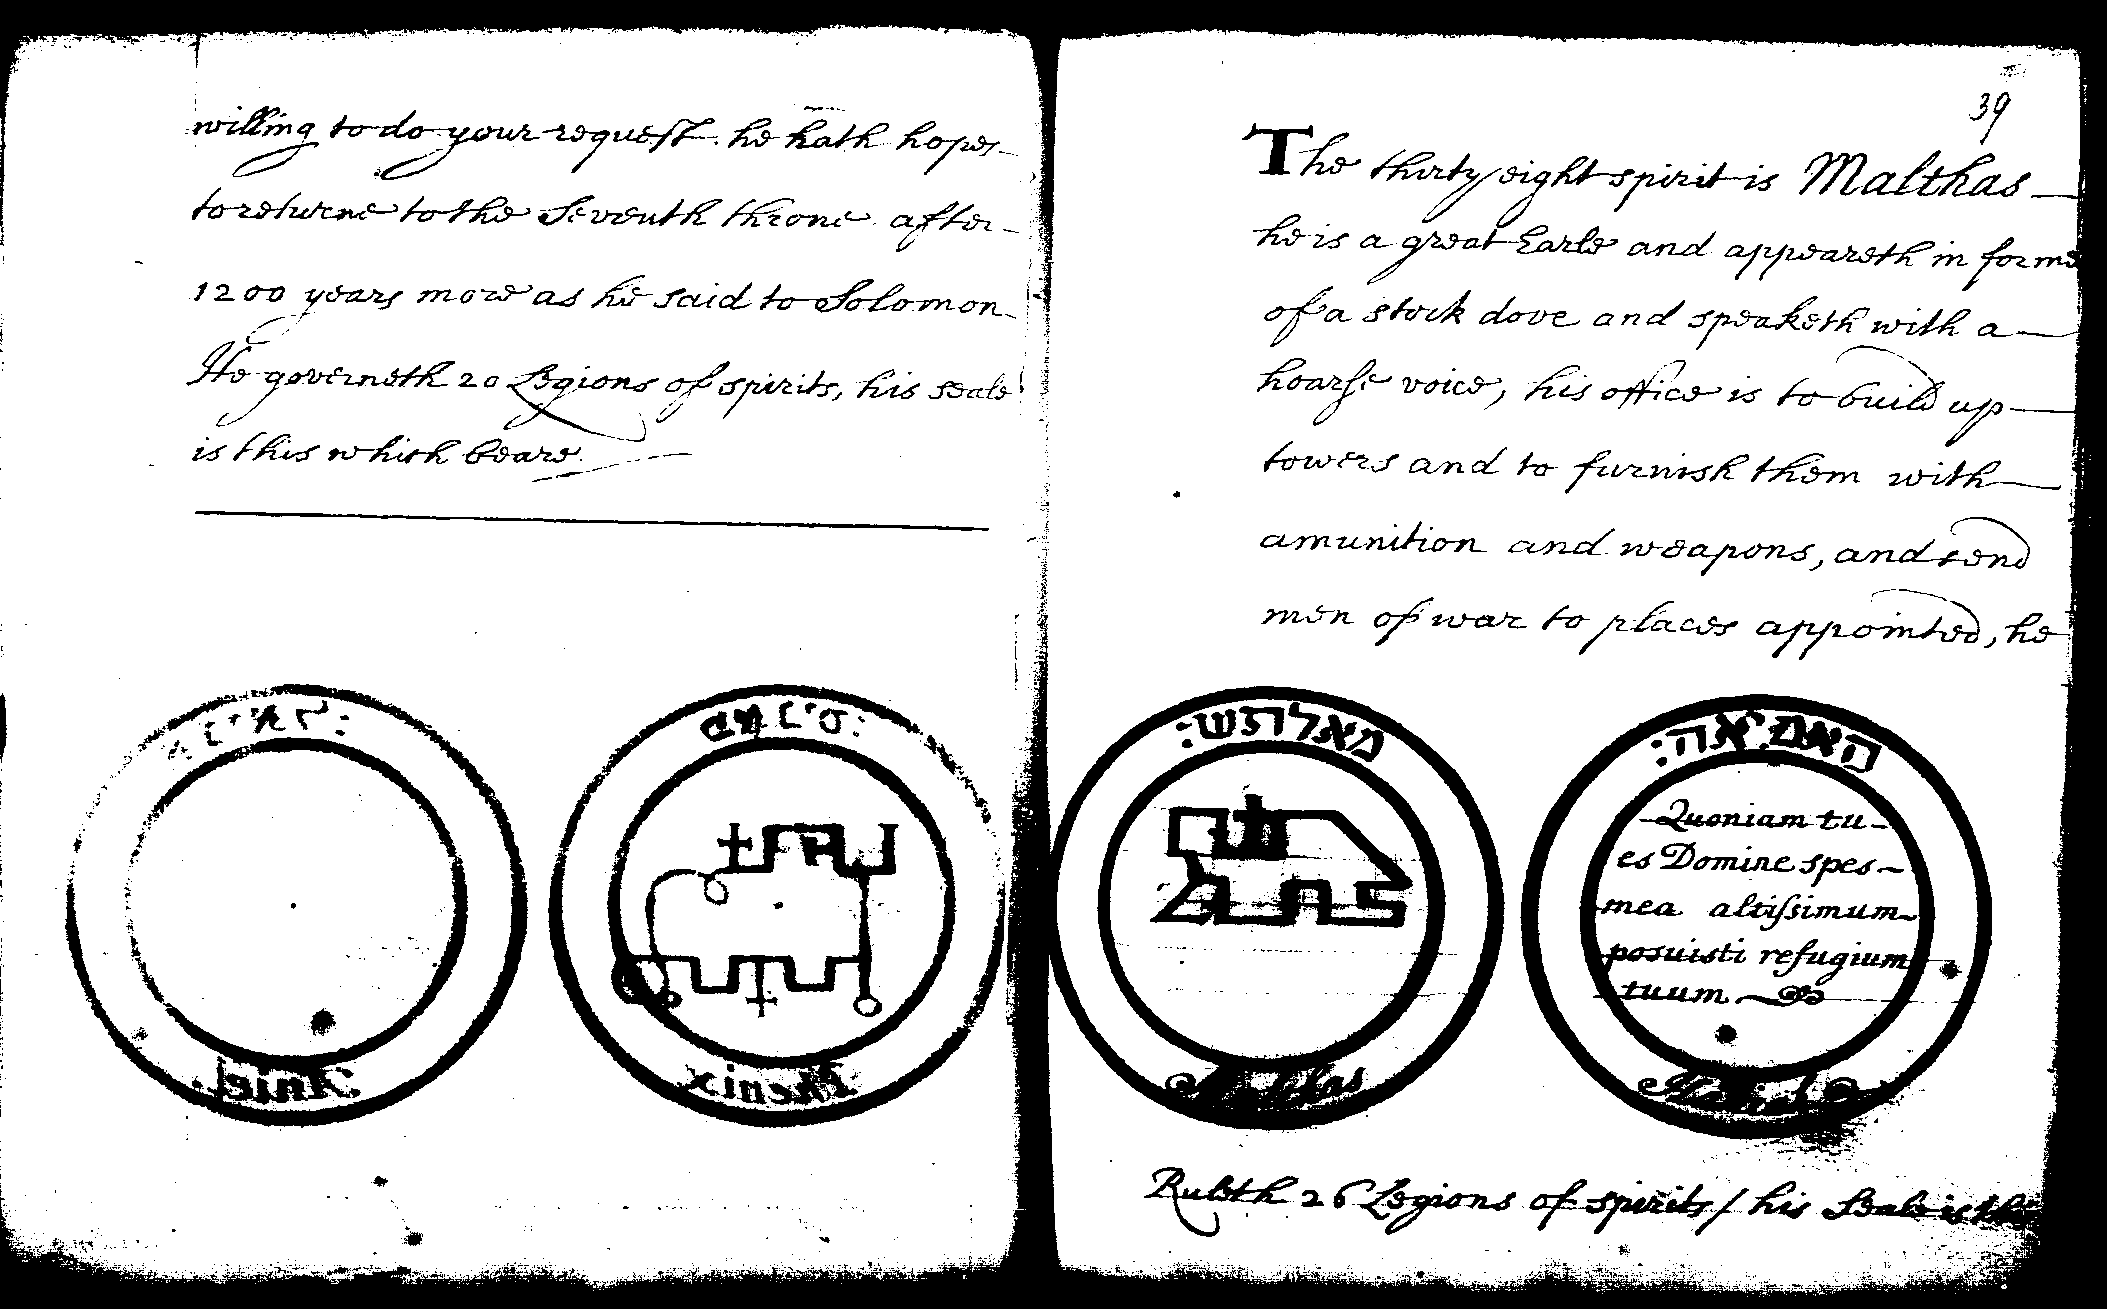 willing to do your request. he hath hopes
to returne to the Seventh throne after
1200 years more as he said to Solomon
He governeth 20 Legions of spirits, his seale
is this which beare
39
The thirty eight spirit is Malthas
he is a great Earle and appeareth in forme
of a stock dove and speaketh with a
hoarse voice, his office is to build up
towers and to furnish them with
amunition and weapons, and send
men of war to places appointed, he
מאלתש:
האמיאה:
Quoniam tu
es Domine spes
mea altissimum
posuisti refugium
tuum
Aniel
Phenix
Malthas
Ruleth 26 Legions of spirits / his Seale is this